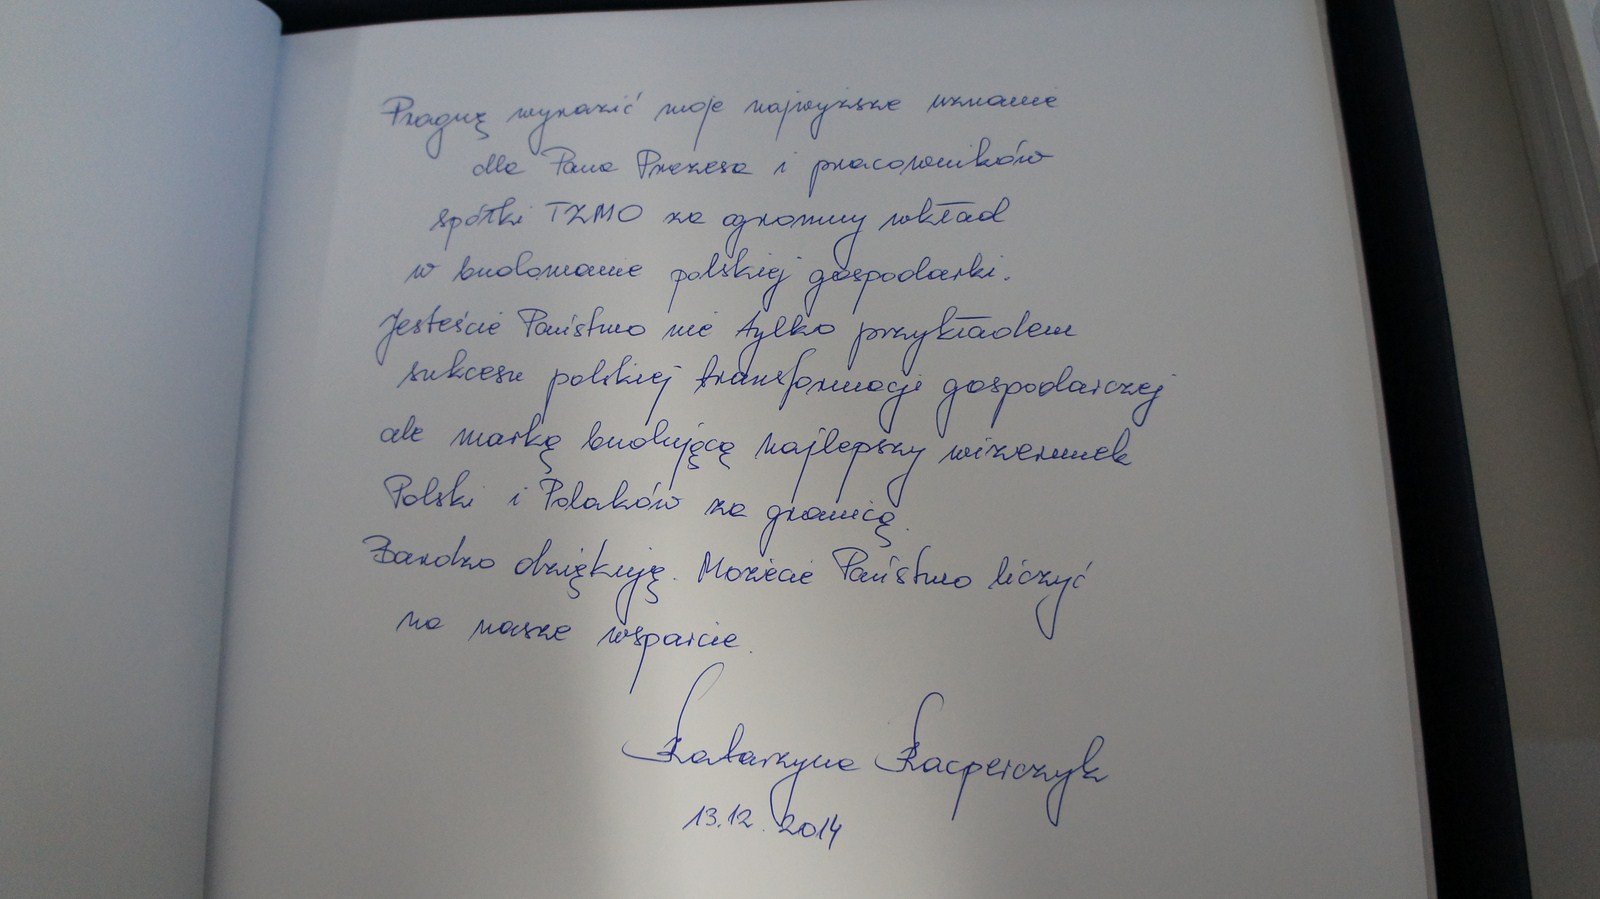 Pragnę wyrazić moje najwyższe uznanie
dla Pana Prezesa i pracowników
spółki TZMO za ogromny wkład
w budowanie polskiej gospodarki.
Jesteście Państwo nie tylko przykładem
sukcesu polskiej transformacji gospodarczej
ale marką budującą najlepszy wizerunek
Polski i Polaków za granicą.
Bardzo dziękuję. Możecie Państwo liczyć
na nasze wsparcie.
Katarzyna Kacperczyk
13.12.2014